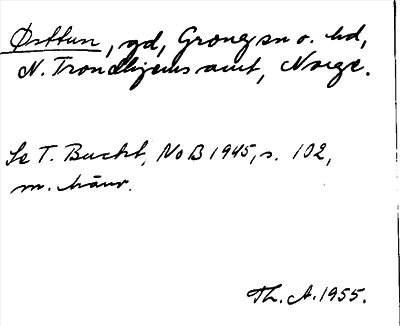 Østtun, gd, Grong sn o. hd,
N. Trondhjems amt, Norge.
Se T. Bucht, NoB 1945, s. 102,
m. hänv.
Th. A. 1955.